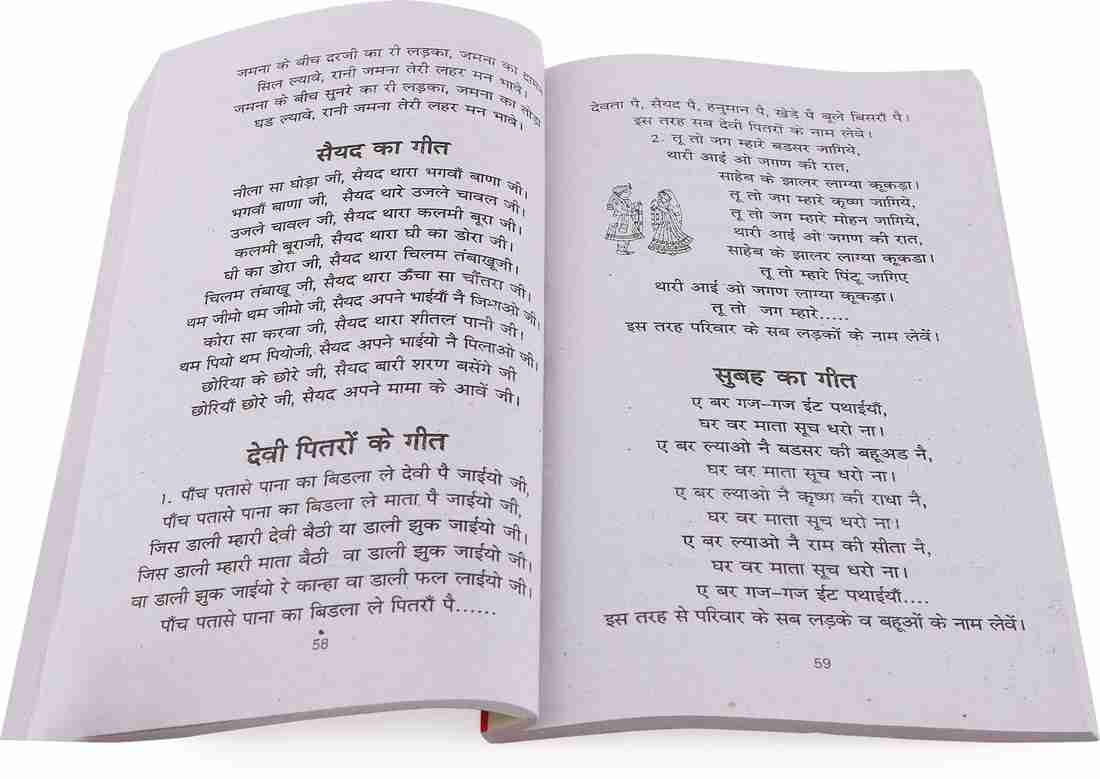 जमना के बीच दरजी का री लड़का, जमना का
सिल ल्यावे, रानी जमना तेरी लहर मन भावे।
जमना के बीच सुनरे का री लड़का, जमना का तोड़ा
घड ल्यावे, रानी जमना तेरी लहर मन भावे।
सैयद का गीत
नीला सा घोड़ा जी, सैयद थारा भगवाँ बाणा जी।
भगवाँ बाणा जी, सैयद थारे उजले चावल जी।
उजले चावल जी, सैयद थारा कलमी बूरा जी।
कलमी बूराजी, सैयद थारा घी का डोरा जी।
घी का डोरा जी, सैयद थारा चिलम तंबाखूजी।
चिलम तंबाखू जी, सैयद थारा ऊँचा सा चौंतरा जी।
थम जीमो थम जीमो जी, सैयद अपने भाईयाँ नै जिमाओ जी।
कोरा सा करवा जी, सैयद थारा शीतल पानी जी।
थम पियो थम पियोजी, सैयद अपने भाईयो नै पिलाओ जी।
छोरिया के छोरे जी, सैयद बारी शरण बसेंगे जी
छोरियाँ छोरे जी, सैयद अपने मामा के आवें जी।
देवी पितरों के गीत
1. पाँच पतासे पाना का बिडला ले देवी पै जाईयो जी,
पाँच पतासे पाना का बिडला ले माता पै जाईयो जी,
जिस डाली म्हारी देवी बैठी या डाली झुक जाईयो जी।
जिस डाली म्हारी माता बैठी वा डाली झुक जाईयो जी।
वा डाली झुक जाईयो रे कान्हा वा डाली फल लाईयो जी।
पाँच पतासे पाना का बिडला ले पितराँ पै......
58
देवता पै, सैयद पै, हनुमान पै, खेडे पै बूले बिसराँ पै।
इस तरह सब देवी पितरों के नाम लेवें।
2. तू तो जग म्हारे बडसर जागिये,
थारी आई ओ जगण की रात,
साहेब के झालर लाग्या कूकड़ा।
तू तो जग म्हारे कृष्ण जागिये,
तू तो जग म्हारे मोहन जागिये,
थारी आई ओ जगण की रात,
साहेब के झालर लाग्या कूकडा।
तू तो म्हारे पिंटू जागिए
थारी आई ओ जगण लाग्या कूकड़ा।
तू तो जग म्हारे.....
इस तरह परिवार के सब लड़कों के नाम लेवें।
सुबह का गीत
ए बर गज-गज ईट पथाईयाँ,
घर वर माता सूच धरो ना।
ए बर ल्याओ नै बडसर की बहूअड नै,
घर वर माता सूच धरो ना।
ए बर ल्याओ नै कृष्ण की राधा नै,
घर वर माता सूच धरो ना।
ए वर ल्याओ नै राम की सीता नै,
घर वर माता सूच धरो ना।
ए बर गज-गज ईट पथाईयाँ....
इस तरह से परिवार के सब लड़के व बहूओं के नाम लेवें।
59